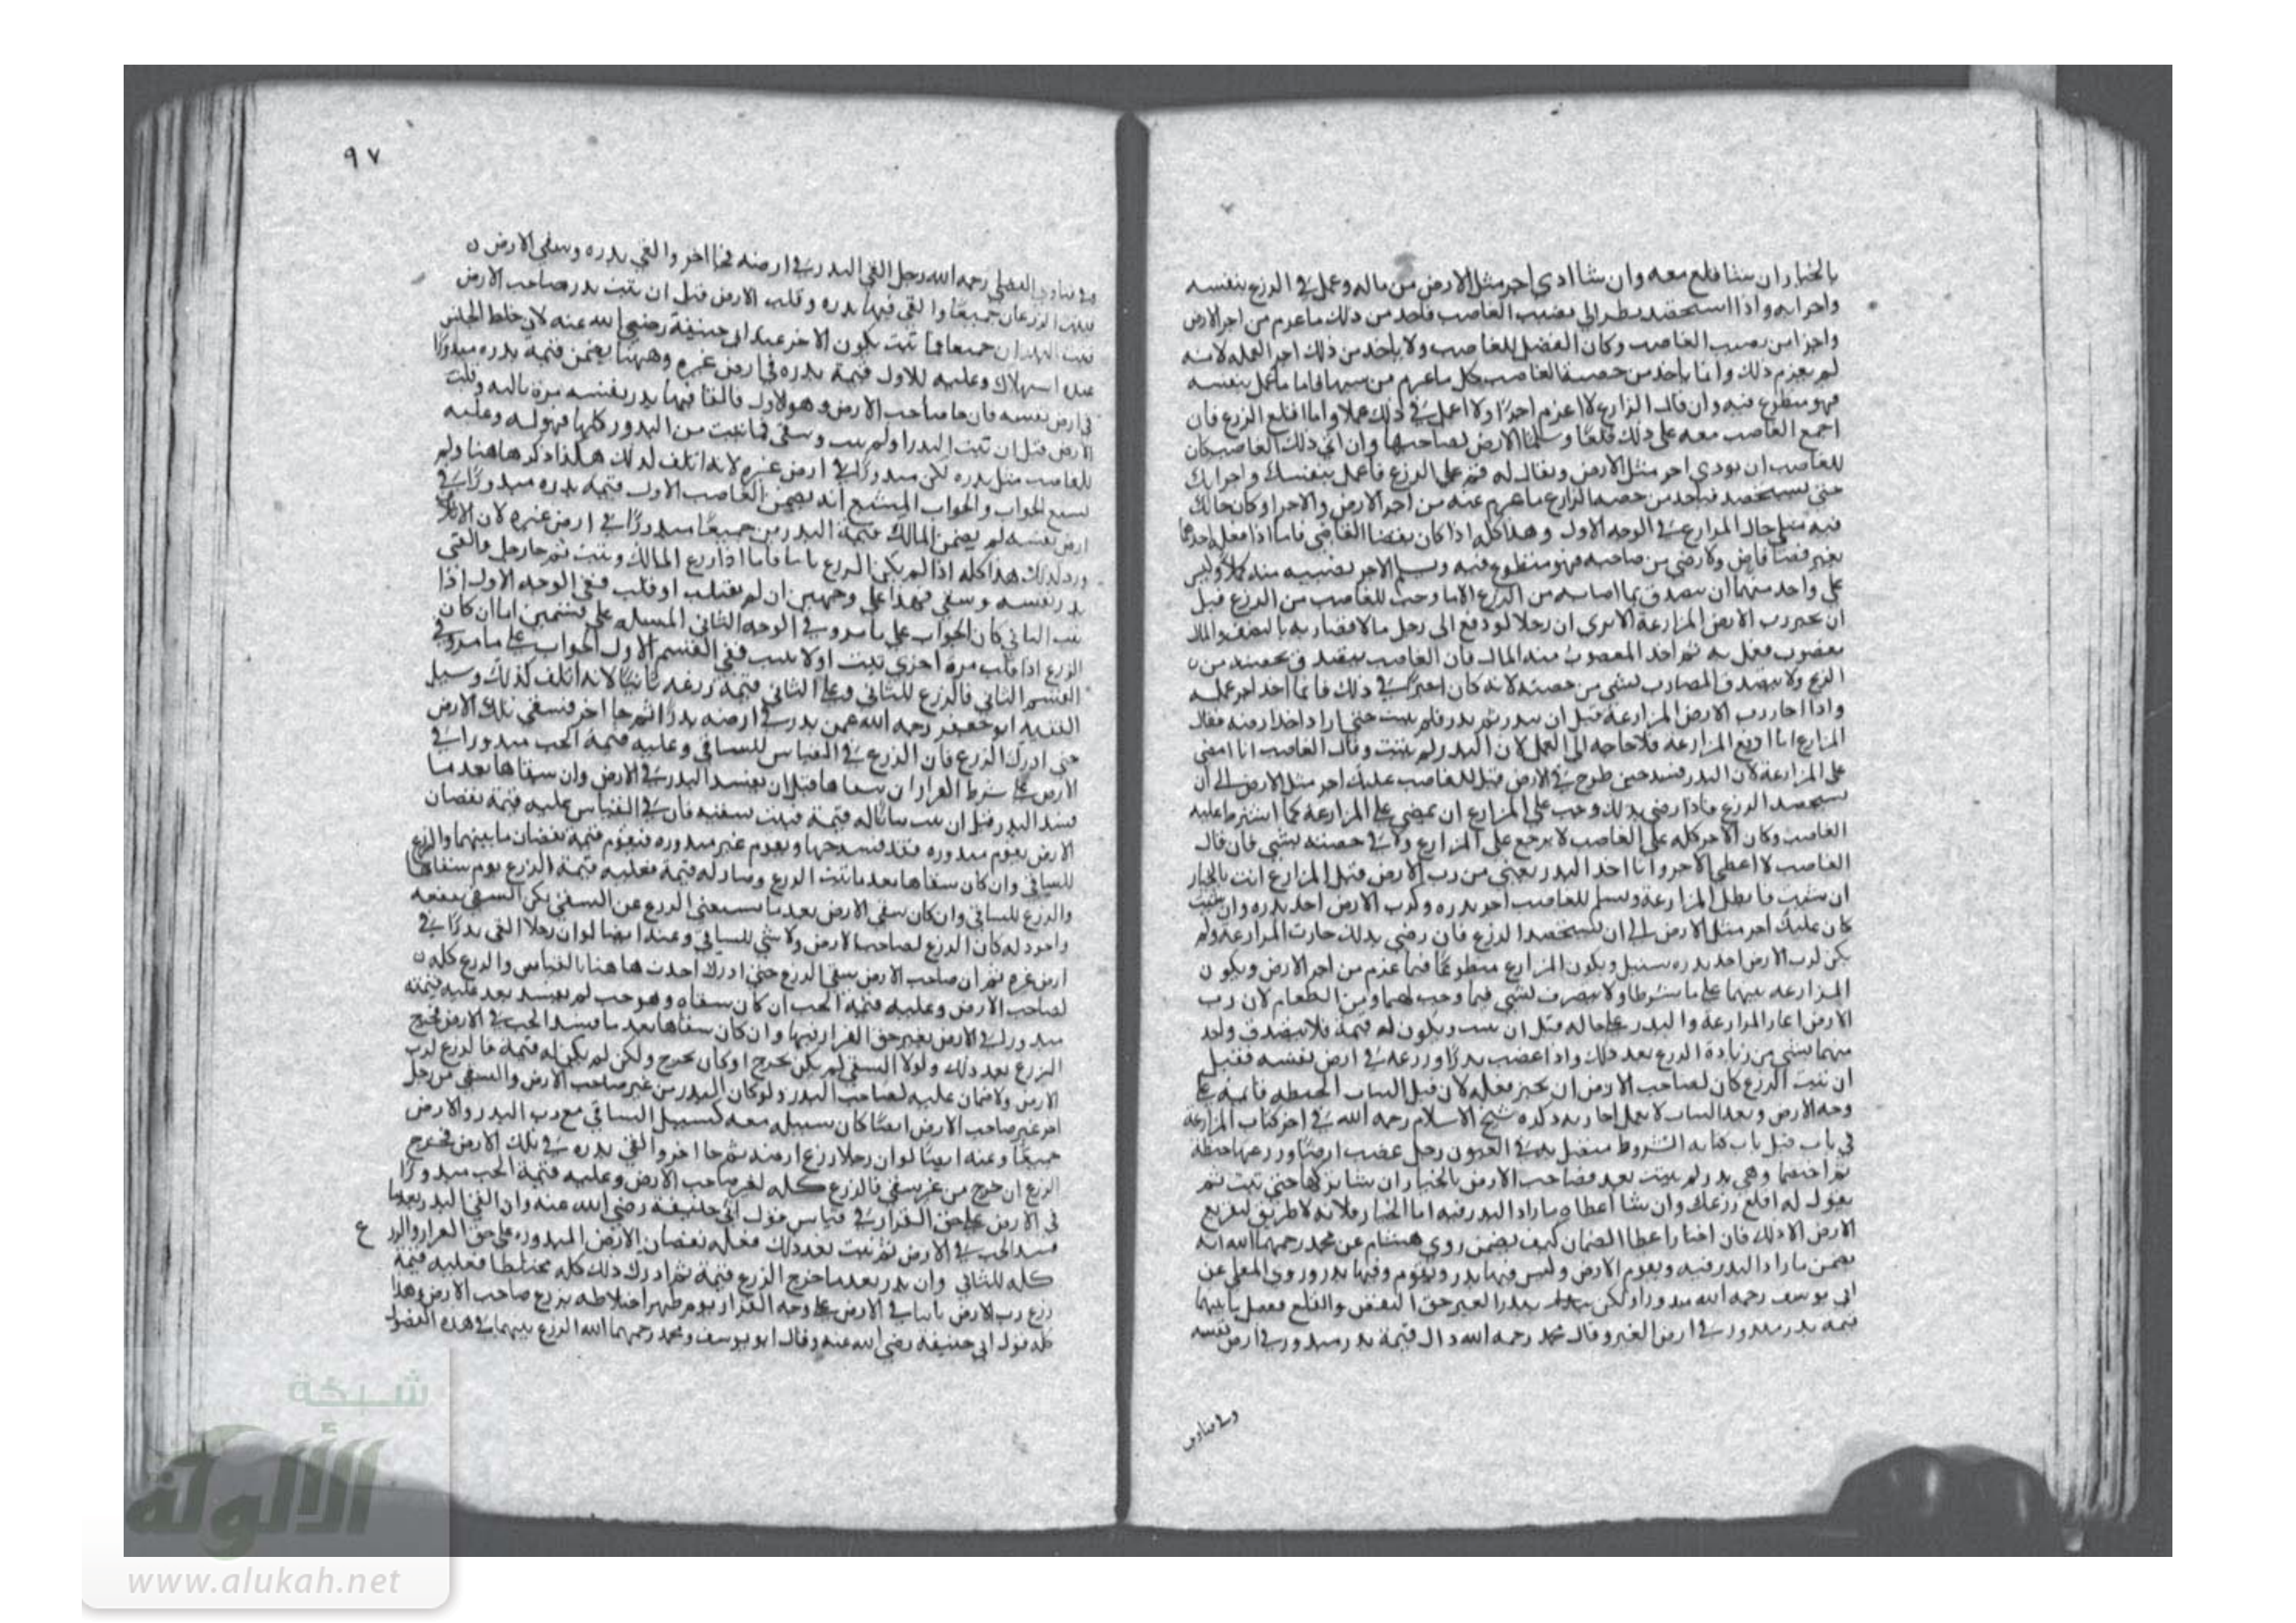 بالخيار ان شا قلع معه وان شا ادي اجر مثل الارض من ماله وعمل في الزرع بنفسه
واجرايه واذا استحصد ينظر الي نصيب الغاصب فاخذ من ذلك ما غرم من اجر الارض
واجرا من نصيب الغاصب وكان الفضل للغاصب ولا ياخذ من ذلك اجر العمله لانه
لم يغرم ذلك وانما ياخذ من حصة الغاصب كل ما غرم من سببها فاما ما عمل بنفسه
فهو متطوع فيه وان قال الزارع لا اغرم اجرا ولا اعمل في ذلك عملا واما اقلع الزرع فان
اجمع الغاصب معه على ذلك قلعا وسلما الارض لصاحبها وان ابي ذلك الغاصب كان
للغاصب ان يودي اجر مثل الارض ويقال له قم على الزرع فاعمل بنفسك واجرايك
حتى يستحصد فياخذ من حصة الزارع ما غرم عنه من اجر الارض والاجرا وكان حالك
فيه مثل حال المزارع في الوجه الاول وهذا كله اذا كان بقضا القاضي فاما اذا فعل احدهما
بغير قضا قاض ولا رضي من صاحبه فهو متطوع فيه ويسلم الاخر نصيبه منه كملا وليس
على واحد منهما ان يتصدق بما اصابه من الزرع الا ما وجب للغاصب من الزرع قبل
ان يجيز رب الارض المزارعة الا يري ان رجلا لو دفع الى رجل مالا مضاربه بالنصف والمال
مغصوب فعمل به ثم اخذ المغصوب منه المال فان الغاصب يتصدق بحصته من
الربح ولا يتصدق المضارب بشي من حصته لانه كان اجيرا في ذلك فانما اخذ اجر عمله
واذا اجاز رب الارض المزارعة قبل ان يبذر ثم بذر فلم ينبت حتى اراد اخذ ارضه فقال
المزارع انا اودع المزارعة فلا حاجه الى العمل لان البذر لم ينبت وقال الغاصب انا امضي
على المزارعة لان البذر فسد حين طرح في الارض قيل للغاصب عليك اجر مثل الارض الى ان
يستحصد الزرع فاذا رضي بذلك وجب على المزارع ان يمضي على المزارعة كما اشترطا عليه
الغاصب وكان الاجر كله على الغاصب لا يرجع على المزارع ولا في حصته بشي فان قال
الغاصب لا اعطي الاجر وانا اخذ البذر يعني من رب الارض قيل المزارع انت بالخيار
ان شيت فابطل المزارعة ويسلم للغاصب اخو بذره ولرب الارض اخذ بذره وان شيت
كان عليك اجر مثل الارض الى ان يستحصد الزرع فان رضي بذلك جازت المزارعة ولم
يكن لرب الارض اخذ بذره سبيل ويكون المزارع متطوعا فيما غرم من اجر الارض ويكون
المزارعه بينهما على ما شرطا ولا يتصرف بشي فيما وجب لهما من الطعام لان رب
الارض اجاز المزارعة والبذر على حاله قبل ان ينبت ويكون له قيمة فلا يتصدق واحد
منهما بشي من زيادة الزرع بعد ذلك واذا غصب بذرا وزرعه في ارض نفسه فقبل
ان نبت الزرع كان لصاحب الارض ان يجيز فعله لان قبل النبات الحنطه قايمة على
وجه الارض وبعد النبات لا يعمل اجازته ذكره شيخ الاسلام رحمه الله في اخر كتاب المزارعة
في باب قبل باب كتابه الشروط متصل به في العيون رجل غصب ارضا وزرعها حنطة
ثم اختصما وهي بذر لم ينبت بعد فصاحب الارض بالخيار ان شا تركها حتى تنبت ثم
يقول له اقلع زرعك وان شا اعطاه ما زاد البذر فيه اما الخيار فلانه لا طريق لتفريغ
الارض الا ذلك فان اختار اعطا الضمان كيف يضمن روي هشام عن محمد رحمهما الله انه
يضمن ما زاد البذر فيه ويقوم الارض وليس فيها بذر ويقوم وفيها بذر وروي المعلى عن
ابي يوسف رحمه الله مبذورا ولكن بذرا لغير حق النقض والقلع فيفضل ما بينهما
قيمه بذر مبذور في ارض الغير وقال محمد رحمه الله قيمة بذر مبذور في ارض نفسه
وفي فتاوى

٩٧
وفي فتاوي الفضلي رحمه الله رجل القي البذر في ارضه فجا اخر والقي بذره وسقي الارض
فنبت الزرعان جميعا والقى فيها بذره وقلب الارض قبل ان ينبت بذر صاحب الارض
فنبت البذران جميعا فما نبت يكون الاخر عند ابي حنيفة رضي الله عنه لان خلط الجنس
عنده استهلاك وعليه للاول قيمة بذره في ارض غيره وههنا يضمن قيمه بذره مبذورا
في ارض نفسه فان جا صاحب الارض وهو الاول فالقا فيها بذر نفسه مرة ثانيه وقلب
الارض قبل ان تنبت البذر اولم ينبت وسقى فما نبتت من البذور كلها فهو له وعليه
للغاصب مثل بذره لكن مبذورا في ارض غيره لانه اتلف لذلك هكذا ذكر هاهنا ولم
يشبع الجواب والجواب المشبع انه يضمن الغاصب الاول قيمه بذره مبذورا في
ارض نفسه ثم يضمن المالك قيمة البذرين جميعا مبذورا في ارض غيره لان الاتلاف
ورد كذلك هذا كله اذا لم يكن الزرع نابتا فاما اذا زرع المالك ونبت ثم جا رجل والقى
بذر نفسه وسقى فهذا على وجهين ان لم يقلب او قلب ففي الوجه الاول اذا
نبت الثاني كان الجواب على ما مر وفي الوجه الثاني المسئله على قسمين اما ان كان
الزرع اذا قلب مرة اخري نبت اولا ينبت ففي القسم الاول الجواب على ما مر وفي
القسم الثاني فالزرع للثاني وعلى الثاني قيمة زرعه نابتا لانه اتلف كذلك وسيل
الفقيه ابو جعفر رحمه الله عمن بذر في ارضه بذرا ثم جا اخر فسقي تلك الارض
حتى ادرك الزرع فان الزرع في القياس للساقي وعليه قيمة الحب مبذورا في
الارض على شرط القرار ان سقاها قبل ان يفسد البذر في الارض وان سقاها بعد ما
فسد البذر قبل ان ينبت نباتا له قيمة فنبت سقيه فان في القياس عليه قيمة نقصان
الارض يقوم مبذوره فقد فسد حبها ويقوم غير مبذوره فيقوم قيمة نقصان ما بينهما والزرع
للساقي وان كان سقاها بعد ما نبت الزرع وصار له قيمة فعليه قيمة الزرع يوم سقاها
والزرع للساقي وان كان سقى الارض بعد ما يستغني الزرع عن السقي لكن السقي ينفعه
واجود له كان الزرع لصاحب الارض ولا شي للساقي وعنه ايضا لو ان رجلا القى بذرا في
ارض غيره ثم ان صاحب الارض يسقي الزرع حتى ادرك احدث هاهنا بالقياس والزرع كله
لصاحب الارض وعليه قيمة الحب ان كان سقاه وهو حب لم يفسد بعد عليه قيمته
مبذورا في الارض بغير حق القرار فيها وان كان سقاها بعد ما فسد الحب في الارض فخرج
الزرع بعد ذلك ولولا السقي لم يكن يخرج او كان يخرج ولكن لم يكن له قيمة فالزرع لرب
الارض ولا ضمان عليه لصاحب البذر ولو كان البذر من غير صاحب الارض والسقي من رجل
اخر غير صاحب الارض ايضا كان سبيله معه كسبيل الساقي مع رب البذر والارض
جميعا وعنه ايضا لو ان رجلا زرع ارضه ثم جا اخر والقي بذره في تلك الارض فخرج
الزرع ان خرج من غير سقي فالزرع كله لغير صاحب الارض وعليه قيمة الحب مبذورا
في الارض على حق القرار في قياس قول ابي حنيفة رضي الله عنه وان القى البذر بعد ما
فسد الحب في الارض ثم نبت بعد ذلك فعليه نقصان الارض المبذوره على حق القرار والزرع
كله للثاني وان بذر بعد ما خرج الزرع قيمة ثم ادرك ذلك كله مختلطا فعليه قيمة
زرع رب الارض نابتا في الارض على وجه القرار يوم ظهر اختلاطه بزرع صاحب الارض وهذا
كله قول ابي حنيفه رضي الله عنه وقال ابو يوسف ومحمد رحمهما الله الزرع بينهما في هذه الفصول
شبكة
الألوكة
www.alukah.net